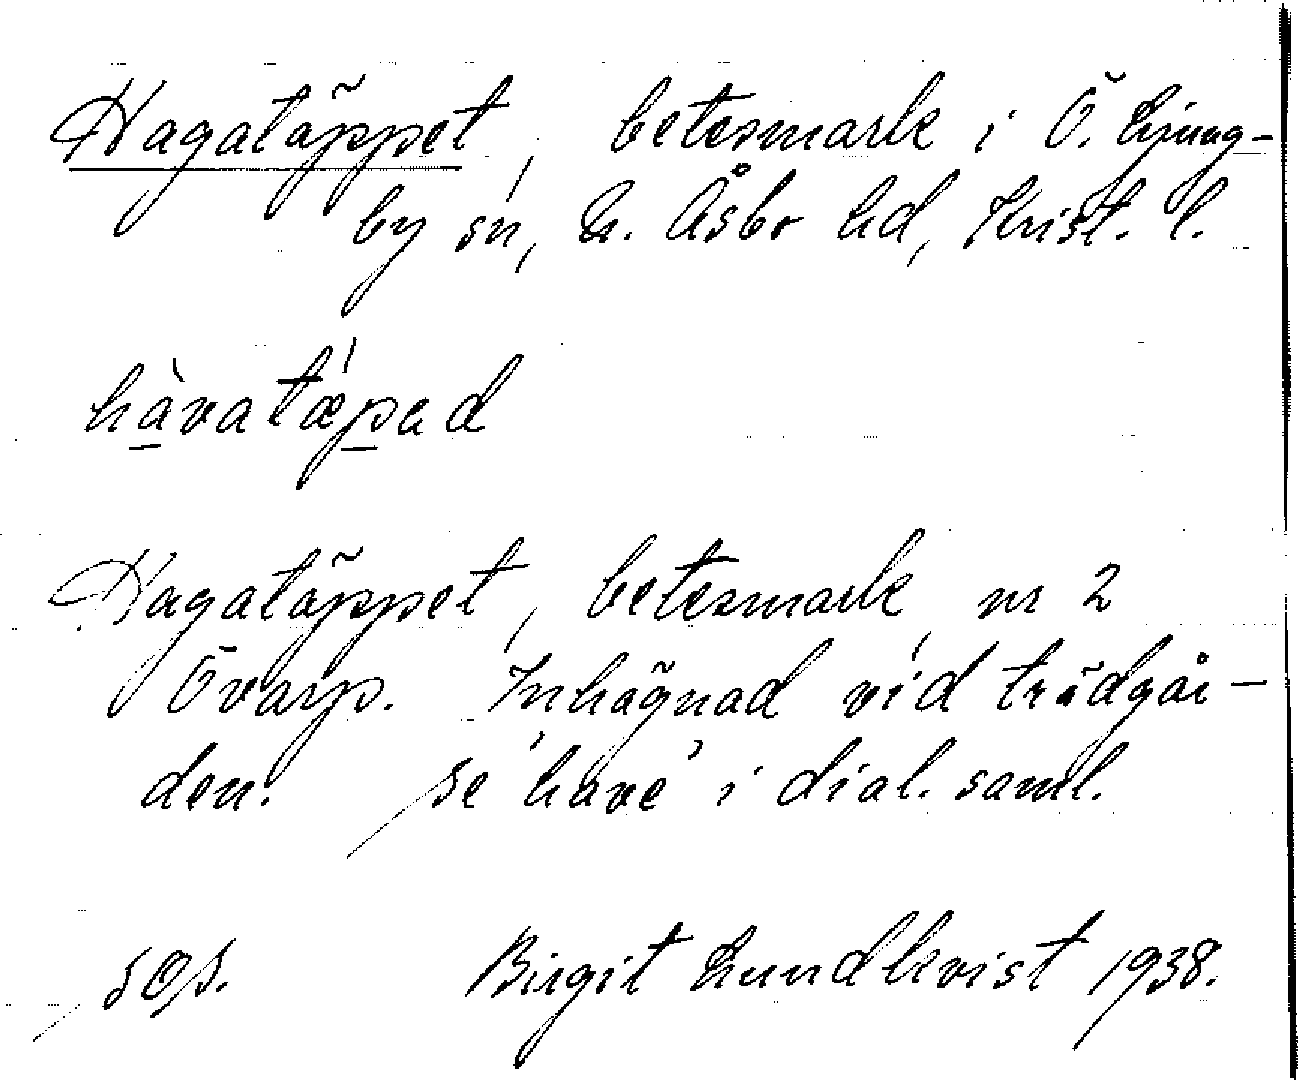 Hagatäppet, betesmark i Ö. Ljung-
by sn, N. Åsbo hd, Krist. l.
hàvatǽpəd
Hagatäppet, betesmark, nr 2
Övarp. Inhägnad vid trädgår-
den. se 'have' i dial. saml.
Birgit Lundkvist 1938.